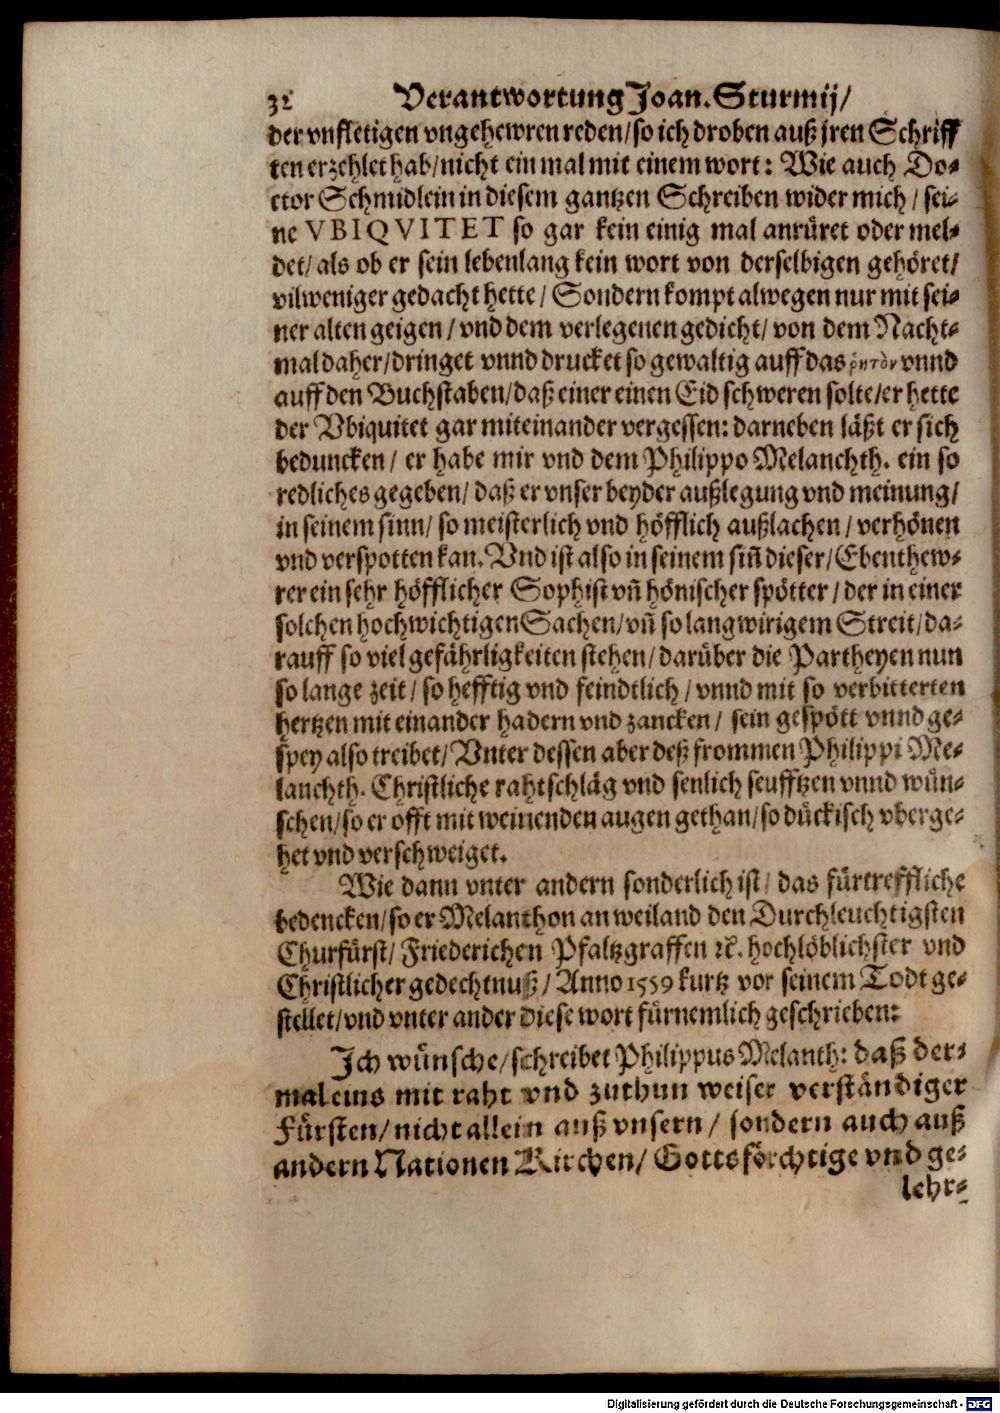 32 Verantwortung Joan. Sturmij/
der vnfletigen vngehewren reden/so ich droben auß jren Schriff
ten erzehlet hab/nicht ein mal mit einem wort: Wie auch Do-
ctor Schmidlein in diesem gantzen Schreiben wider mich/ sei-
ne VBIQVITET so gar kein einig mal anrüret oder mel-
det/ als ob er sein lebenlang kein wort von derselbigen gehöret/
vilweniger gedacht hette/ Sondern kompt alwegen nur mit sei-
ner alten geigen/ vnd dem verlegenen gedicht/ von dem Nacht-
mal daher/dringet vnnd drucket so gewaltig auff das ῥητὸν vnnd
auff den Buchstaben/daß einer einen Eid schweren solte/er hette
der Vbiquitet gar miteinander vergessen: darneben läßt er sich
beduncken/ er habe mir vnd dem Philippo Melanchth. ein so
redliches gegeben/ daß er vnser beyder außlegung vnd meinung/
in seinem sinn/ so meisterlich vnd höfflich außlachen/ verhönen
vnd verspotten kan. Vnd ist also in seinem siñ dieser/Ebenthew-
rer ein sehr höfflicher Sophist vñ hönischer spötter/ der in einer
solchen hochwichtigen Sachen/vñ so langwirigem Streit/da-
rauff so viel gefährligkeiten stehen/darüber die Partheyen nun
so lange zeit/ so hefftig vnd feindtlich/ vnnd mit so verbitterten
hertzen mit einander hadern vnd zancken/ sein gespött vnnd ge-
spey also treibet/ Vnter dessen aber deß frommen Philippi Me-
lanchth. Christliche rahtschläg vnd senlich seufftzen vnnd wün-
schen/so er offt mit weinenden augen gethan/so dückisch vberge-
het vnd verschweiget.
Wie dann vnter andern sonderlich ist/ das fürtreffliche
bedencken/so er Melanthon an weiland den Durchleuchtigsten
Churfürst/ Friederichen Pfaltzgraffen ꝛc. hochlöblichster vnd
Christlicher gedechtnuß/ Anno 1559 kurtz vor seinem Todt ge-
stellet/vnd vnter ander diese wort fürnemlich geschrieben:
Ich wünsche/schreibet Philippus Melanth: daß der-
maleins mit raht vnd zuthun weiser verständiger
Fürsten/nicht allein auß vnsern/ sondern auch auß
andern Nationen Kirchen/ Gottsförchtige vnd ge-
lehr-
Digitalisierung gefördert durch die Deutsche Forschungsgemeinschaft - DFG